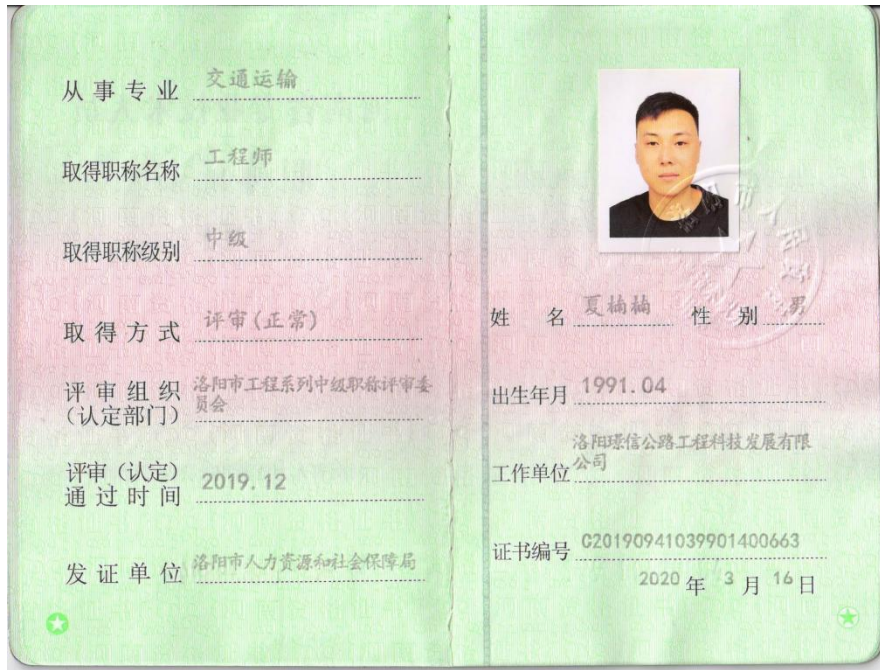 从事专业 交通运输
取得职称名称 工程师
取得职称级别 中级
取得方式 评审(正常)
评审组织
(认定部门)
洛阳市工程系列中级职称评审委
员会
评审(认定)
通过时间 2019.12
发证单位 洛阳市人力资源和社会保障局
姓名 夏楠楠 性别 男
出生年月 1991.04
洛阳璟信公路工程科技发展有限
工作单位 公司
证书编号 C20190941039901400663
2020 年 3 月 16 日